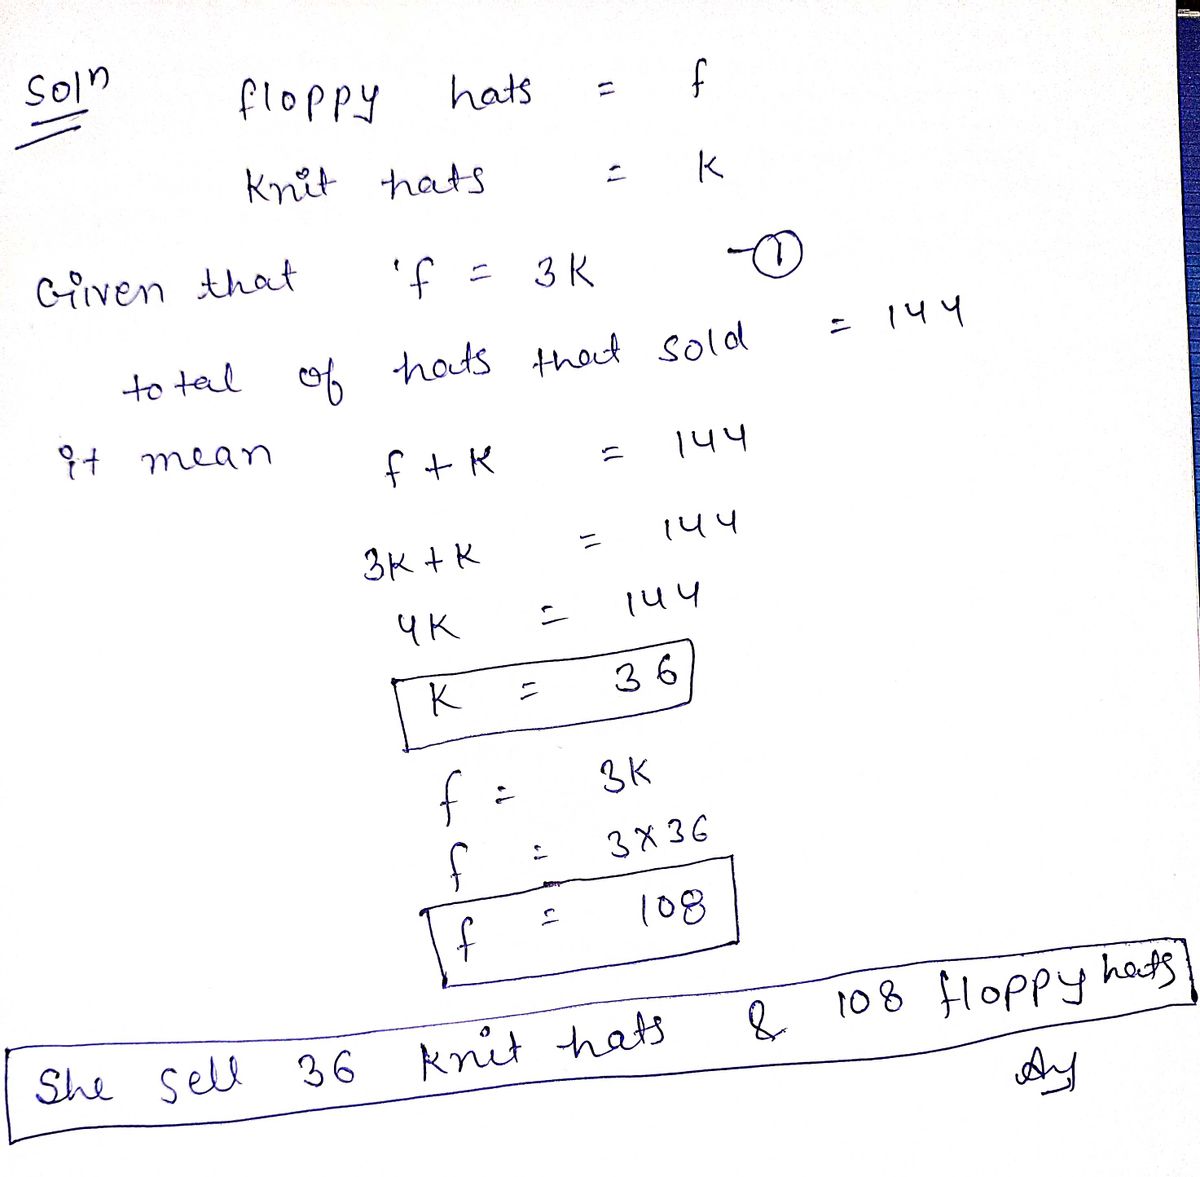 Soln
floppy hats = f
Knit hats = K
Given that 'f = 3K -①
total of hats that sold = 144
it mean f + K = 144
3K + K = 144
4K = 144
K = 36
f = 3K
f = 3×36
f = 108
She sell 36 Knit hats & 108 floppy hats